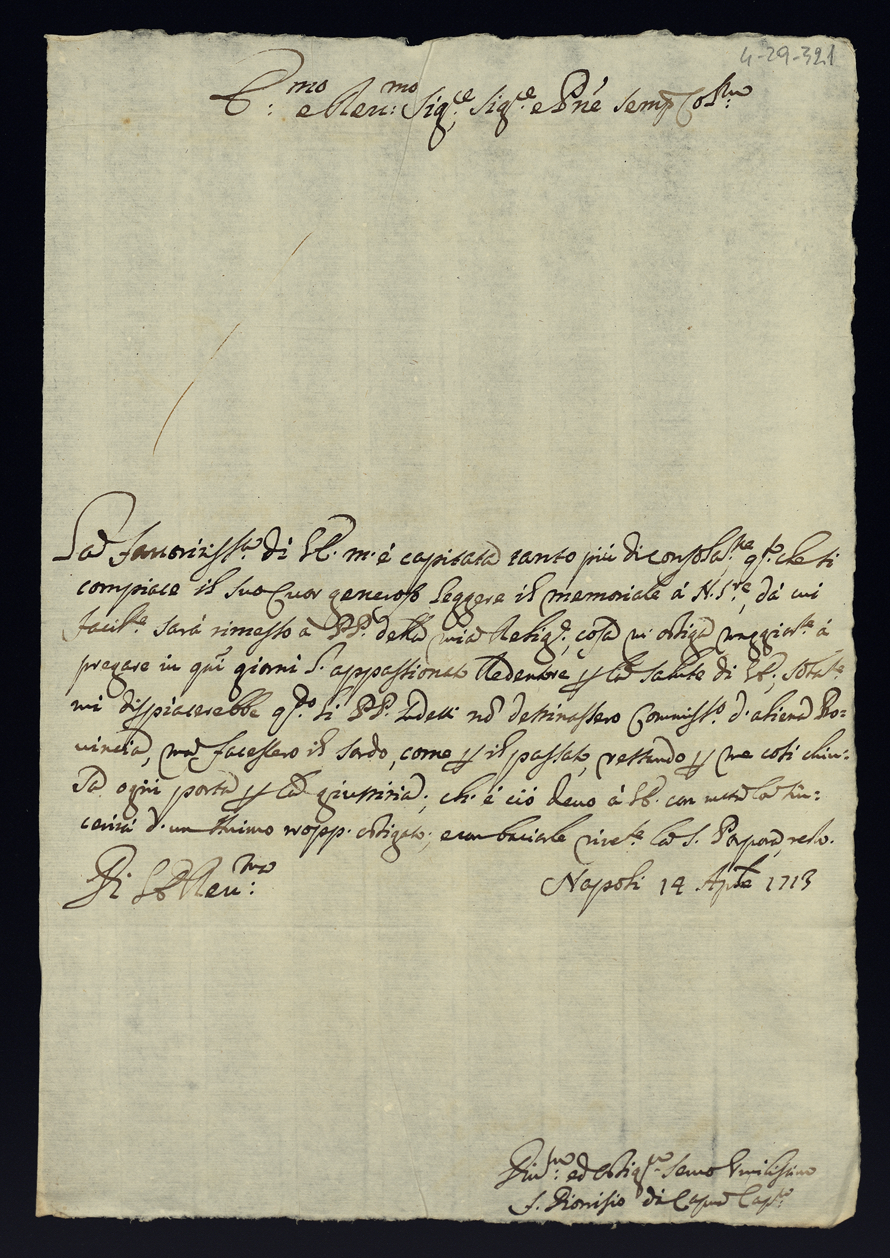 4-29-321
E:mo e Reu:mo Sig:re Sig:re e Pne semp Co
La fauoriss.ma di V.E. m'è capitata tanto più di consolat.ne q.to che si
compiace il suo Cuor generoso leggere il memoriale à N. S.re, dà cui
facilm.te sarà rimesso à PP. della mia Relig.e, cosa mi obliga maggiorm.te à
pregare in q.ti giorni l'appassionato Redentore p la salute di V.E.;
mi dispiacerebbe q.do li PP. sudetti nō destinassero Commiss.o d'aliena Pro-
uincia, ma facessero il sordo, come p il passato, restando p me così chiu-
sa ogni porta p la giustitia; ch'è ciò deuo à V.E. con tutta la sin-
cerità d'un Animo tropp'obligato; e con baciarle riuer.te la S. Porpora, resto.
Di V.E. Reu:ma Napoli 14 Ap.le 1713
Diu:mo ed oblig.mo Seruo Vmilissimo
f. Dionisio di Capua Capp.no